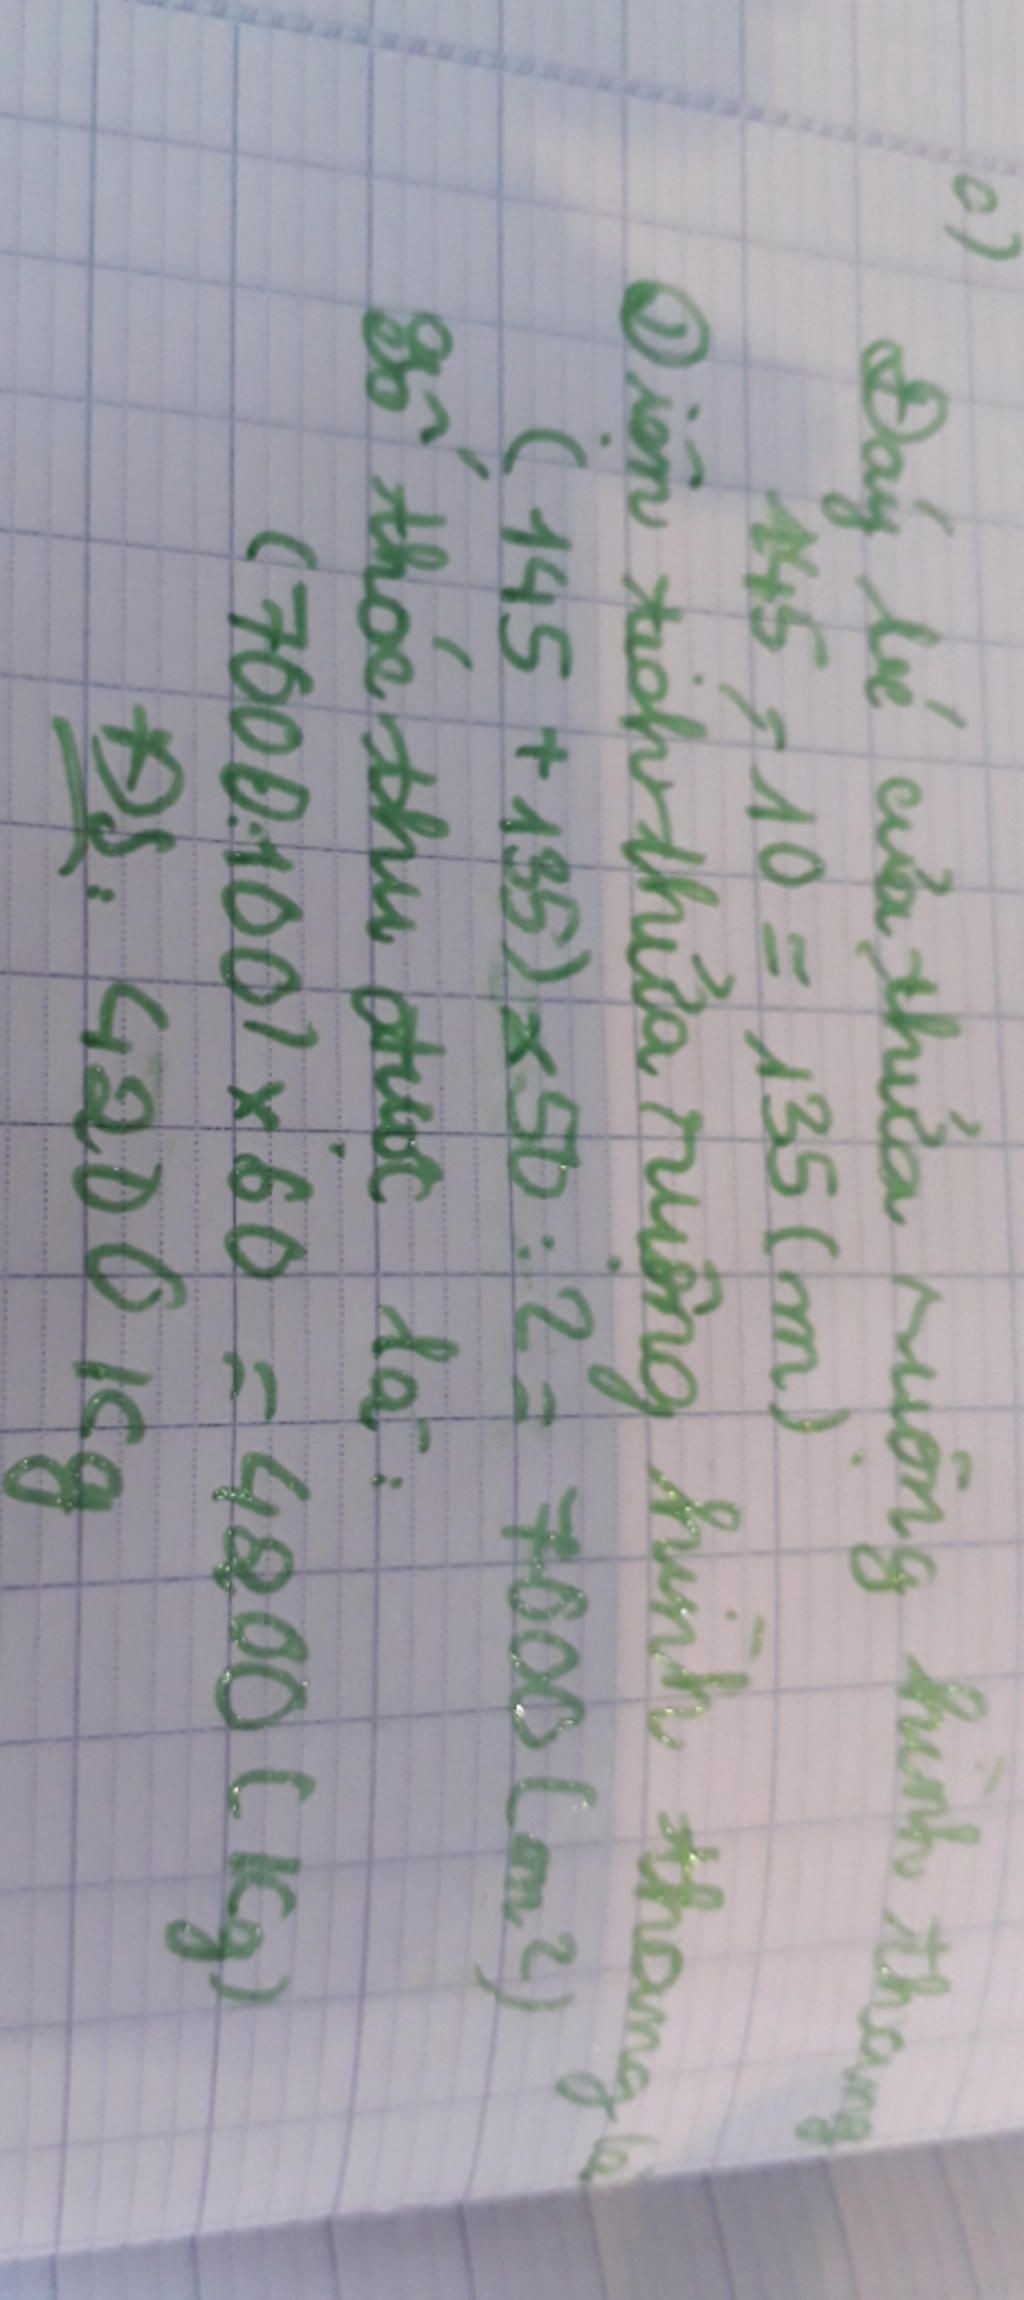 c)
Đáy bé của thửa ruộng hình thang
145 - 10 = 135 (m)
Diện tích thửa ruộng hình thang là
(145 + 135) x 50 : 2 = 7000 (m²)
Số thóc thu được là :
(7000 : 100) x 60 = 4800 (kg)
ĐS : 4200 kg